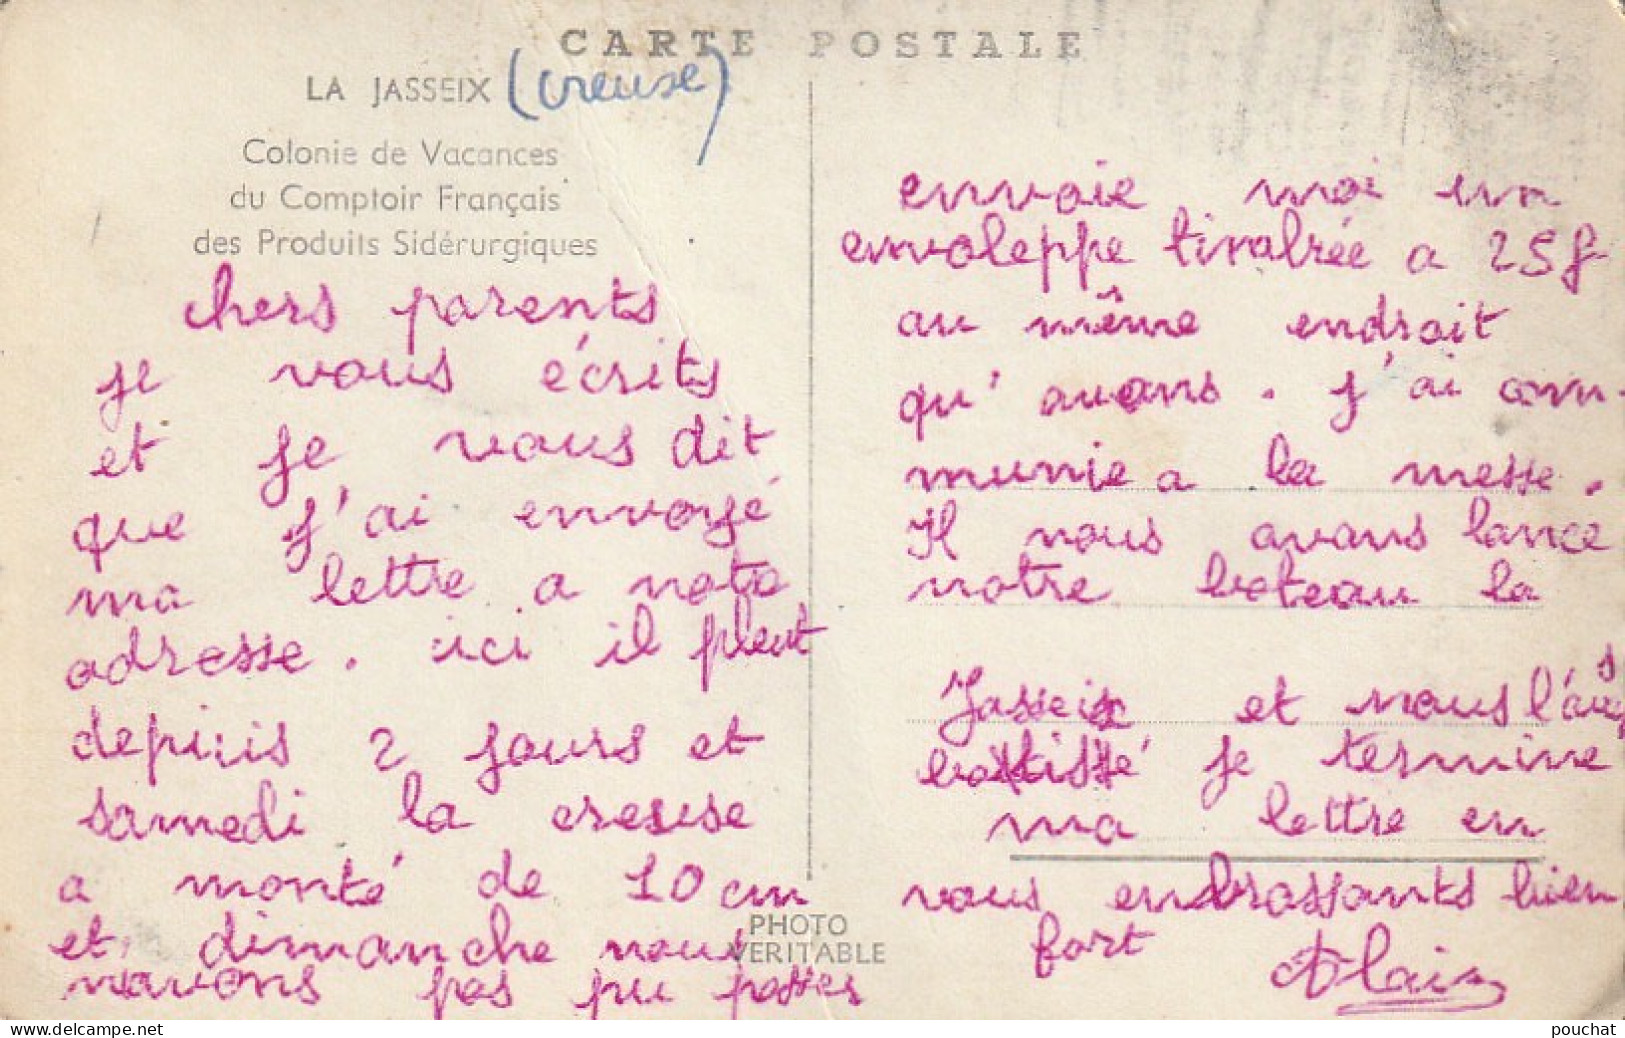 CARTE POSTALE
LA JASSEIX (creuse)
Colonie de Vacances
du Comptoir Français
des Produits Sidérurgiques
chers parents
je vous écrits
et je vous dit
que j'ai envoyé
ma lettre a nota
adresse. ici il pleut
depuis 2 jours et
samedi la creuse
a monté de 10 cm
et dimanche nous
navons pas pu passer
envoie moi un
envoleppe timbrée a 25f
au même endroit
qu'avans. j'ai com-
munie a la messe.
Il nous avans lance
notre bateau la
Jasseix et nous l'avs
battissé je termine
ma lettre en
vous endrassants bien
fort Alain
PHOTO
VERITABLE
pouchat